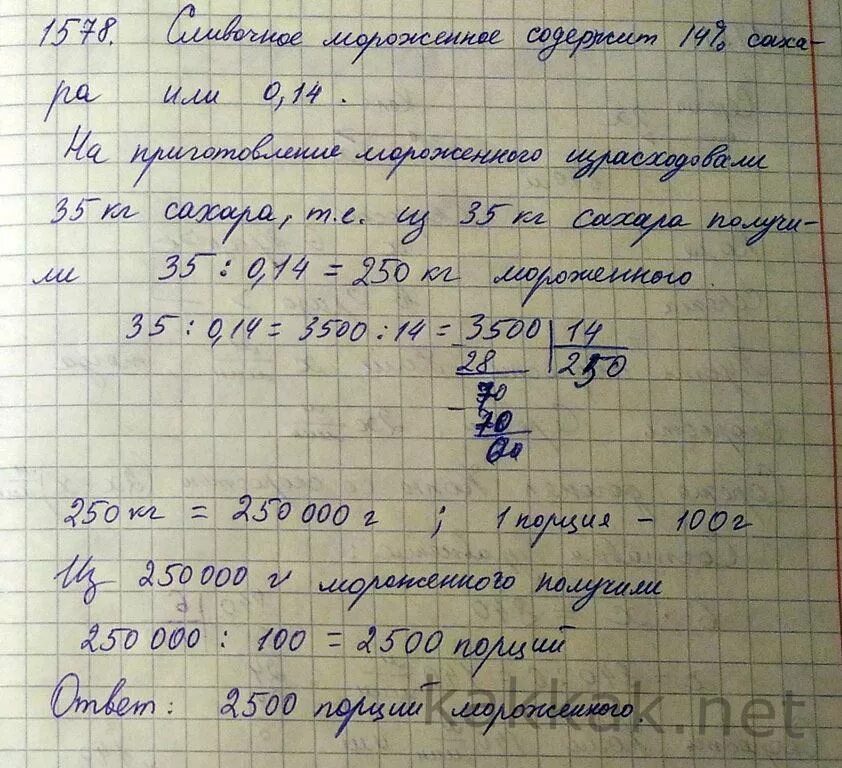 1578. Сливочное мороженное содержит 14% саха-
ра или 0,14.
На приготовление мороженного израсходовали
35 кг сахара, т.е. из 35 кг сахара получи-
ли 35 : 0,14 = 250 кг мороженного.
35 : 0,14 = 3500 : 14 = 3500 | 14
28 250
70
- 70
250 кг = 250 000 г ; 1 порция - 100 г
Из 250000 г мороженного получили
250 000 : 100 = 2500 порций
Ответ: 2500 порций мороженного.
kakkak.net